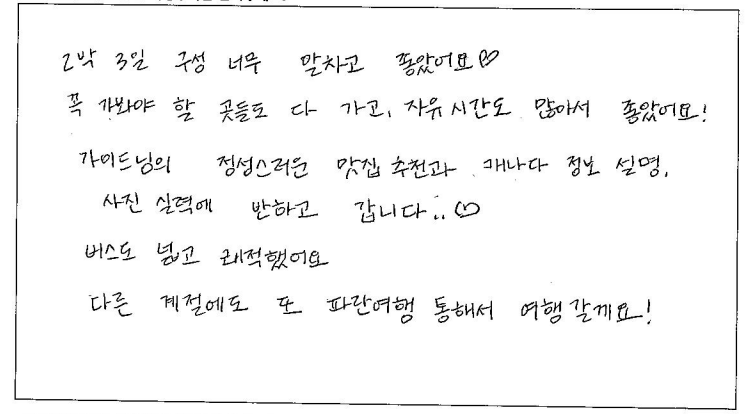 2박 3일 구성 너무 알차고 좋았어요♡
꼭 가봐야 할 곳들도 다 가고, 자유시간도 많아서 좋았어요!
가이드님의 정성스러운 맛집 추천과 캐나다 정보 설명,
사진 실력에 반하고 갑니다..♡
버스도 넓고 쾌적했어요
다른 계절에도 또 파란여행 통해서 여행갈게요!